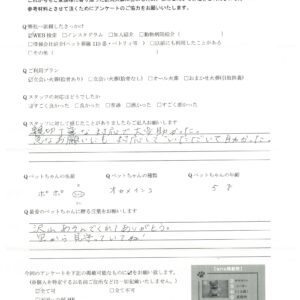 参考材料とさせて頂くためにアンケートのご協力をお願いいたします。
Q 弊社へ依頼したきっかけ?
☑WEB検索 □インスタグラム □知人紹介 □動物病院紹介
□以前にも利用したことがある
□その他( )
Q ご利用プラン
☑立会い火葬(拾骨あり) □立会い火葬(拾骨なし) □オール火葬 □おまかせ火葬(自然供養)
Q スタッフの対応はどうでしたか
□すごく良かった □良かった □普通 □悪かった □すごく悪かった
Q スタッフに対して感じたことがありましたらご記入お願いします
親切丁寧な対応で大変助かった。
急なお願いにも対応していただいて助かった。
Q ペットちゃんの名前
Q ペットちゃんの種類
Q ペットちゃんの年齢
ポポ
オカメインコ
5才
Q 最愛のペットちゃんに贈る言葉をお願いします
沢山あそんでくれてありがとう。
空から見守っていてね!
今回のアンケートを下記の掲載可能なものに☑をお願い致します。
□全て可 □全て不可